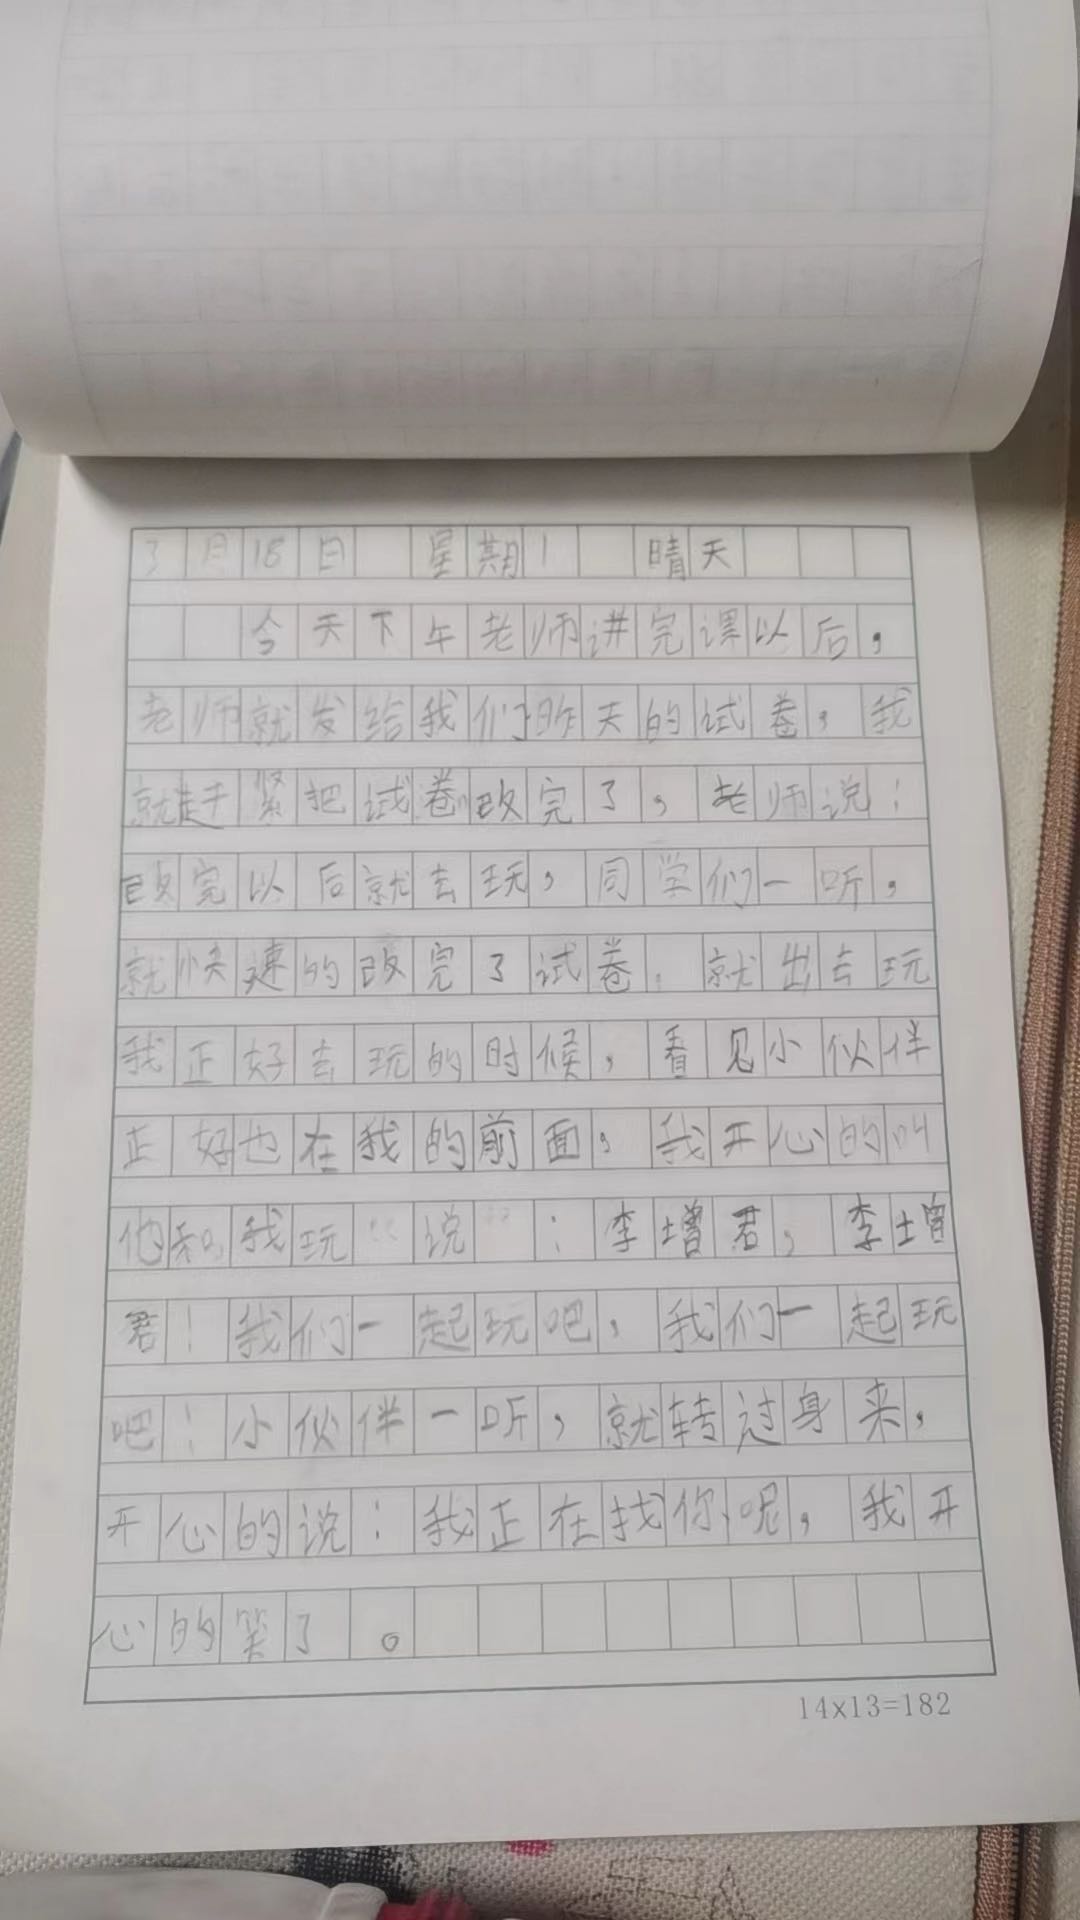 3月18日 星期1 晴天
今天下午老师讲完课以后,
老师就发给我们昨天的试卷,我
就赶紧把试卷改完了,老师说:
改完以后就去玩,同学们一听,
就快速的改完了试卷.就出去玩
我正好去玩的时候,看见小伙伴
正好也在我的前面,我开心的叫
他和我玩“说”:李增君,李增
君!我们一起玩吧,我们一起玩
吧!小伙伴一听,就转过身来,
开心的说:我正在找你呢,我开
心的笑了。
14x13=182